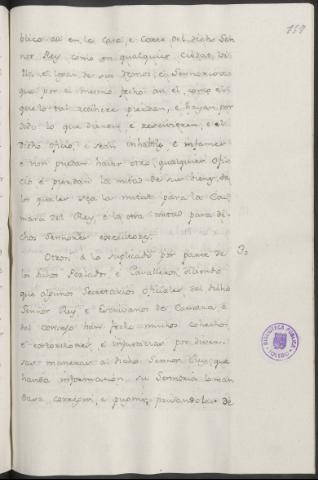 159
blico assi en la Casa, e Corte del dicho Señ
nor Rey, como en qualquier Cibdat, Vi
lla, e logar de sus Regnos, e Sennorios e
que por el mesmo fecho an el, como el
que lo tal recibiere pierdan, e hayan per
dido lo que dieren, e recivieren, e el
dicho oficio, e sean inhabiles, e infames
e non puedan haver otro qualquier ofi
cio e pierdan la mitad de sus bienes, de
los quales sea la mitad para la Ca
mara del Rey, e la otra mitad para di
chos Sennores executores.
Otrosi, a lo suplicado por parte de 3.
los dichos Perlados, e Cavalleros, diciendo
que algunos Secretarios Oficiales del dicho
Sennor Rey, e Escribanos de Camara, e
del consejo han fecho muchos cohechos,
e corrupciones, e injusticias por diver
sas maneras al dicho Sennor Rey, que
havida informacion, su Sennoria lo man
dase corregir, e punir, privandoles de
BIBLIOTECA PUBLICA
TOLEDO